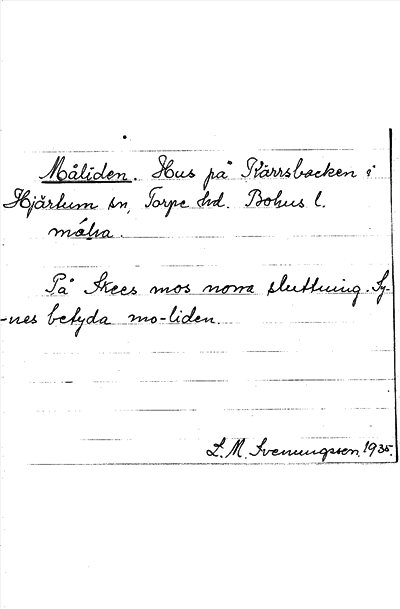 Måliden. Hus på Kärrsbacken i
Hjärtum sn, Torpe hd. Bohus l.
På Skees mos norra sluttning. Sy-
-nes betyda mo-liden.
L. M. Svenungsson. 1935.